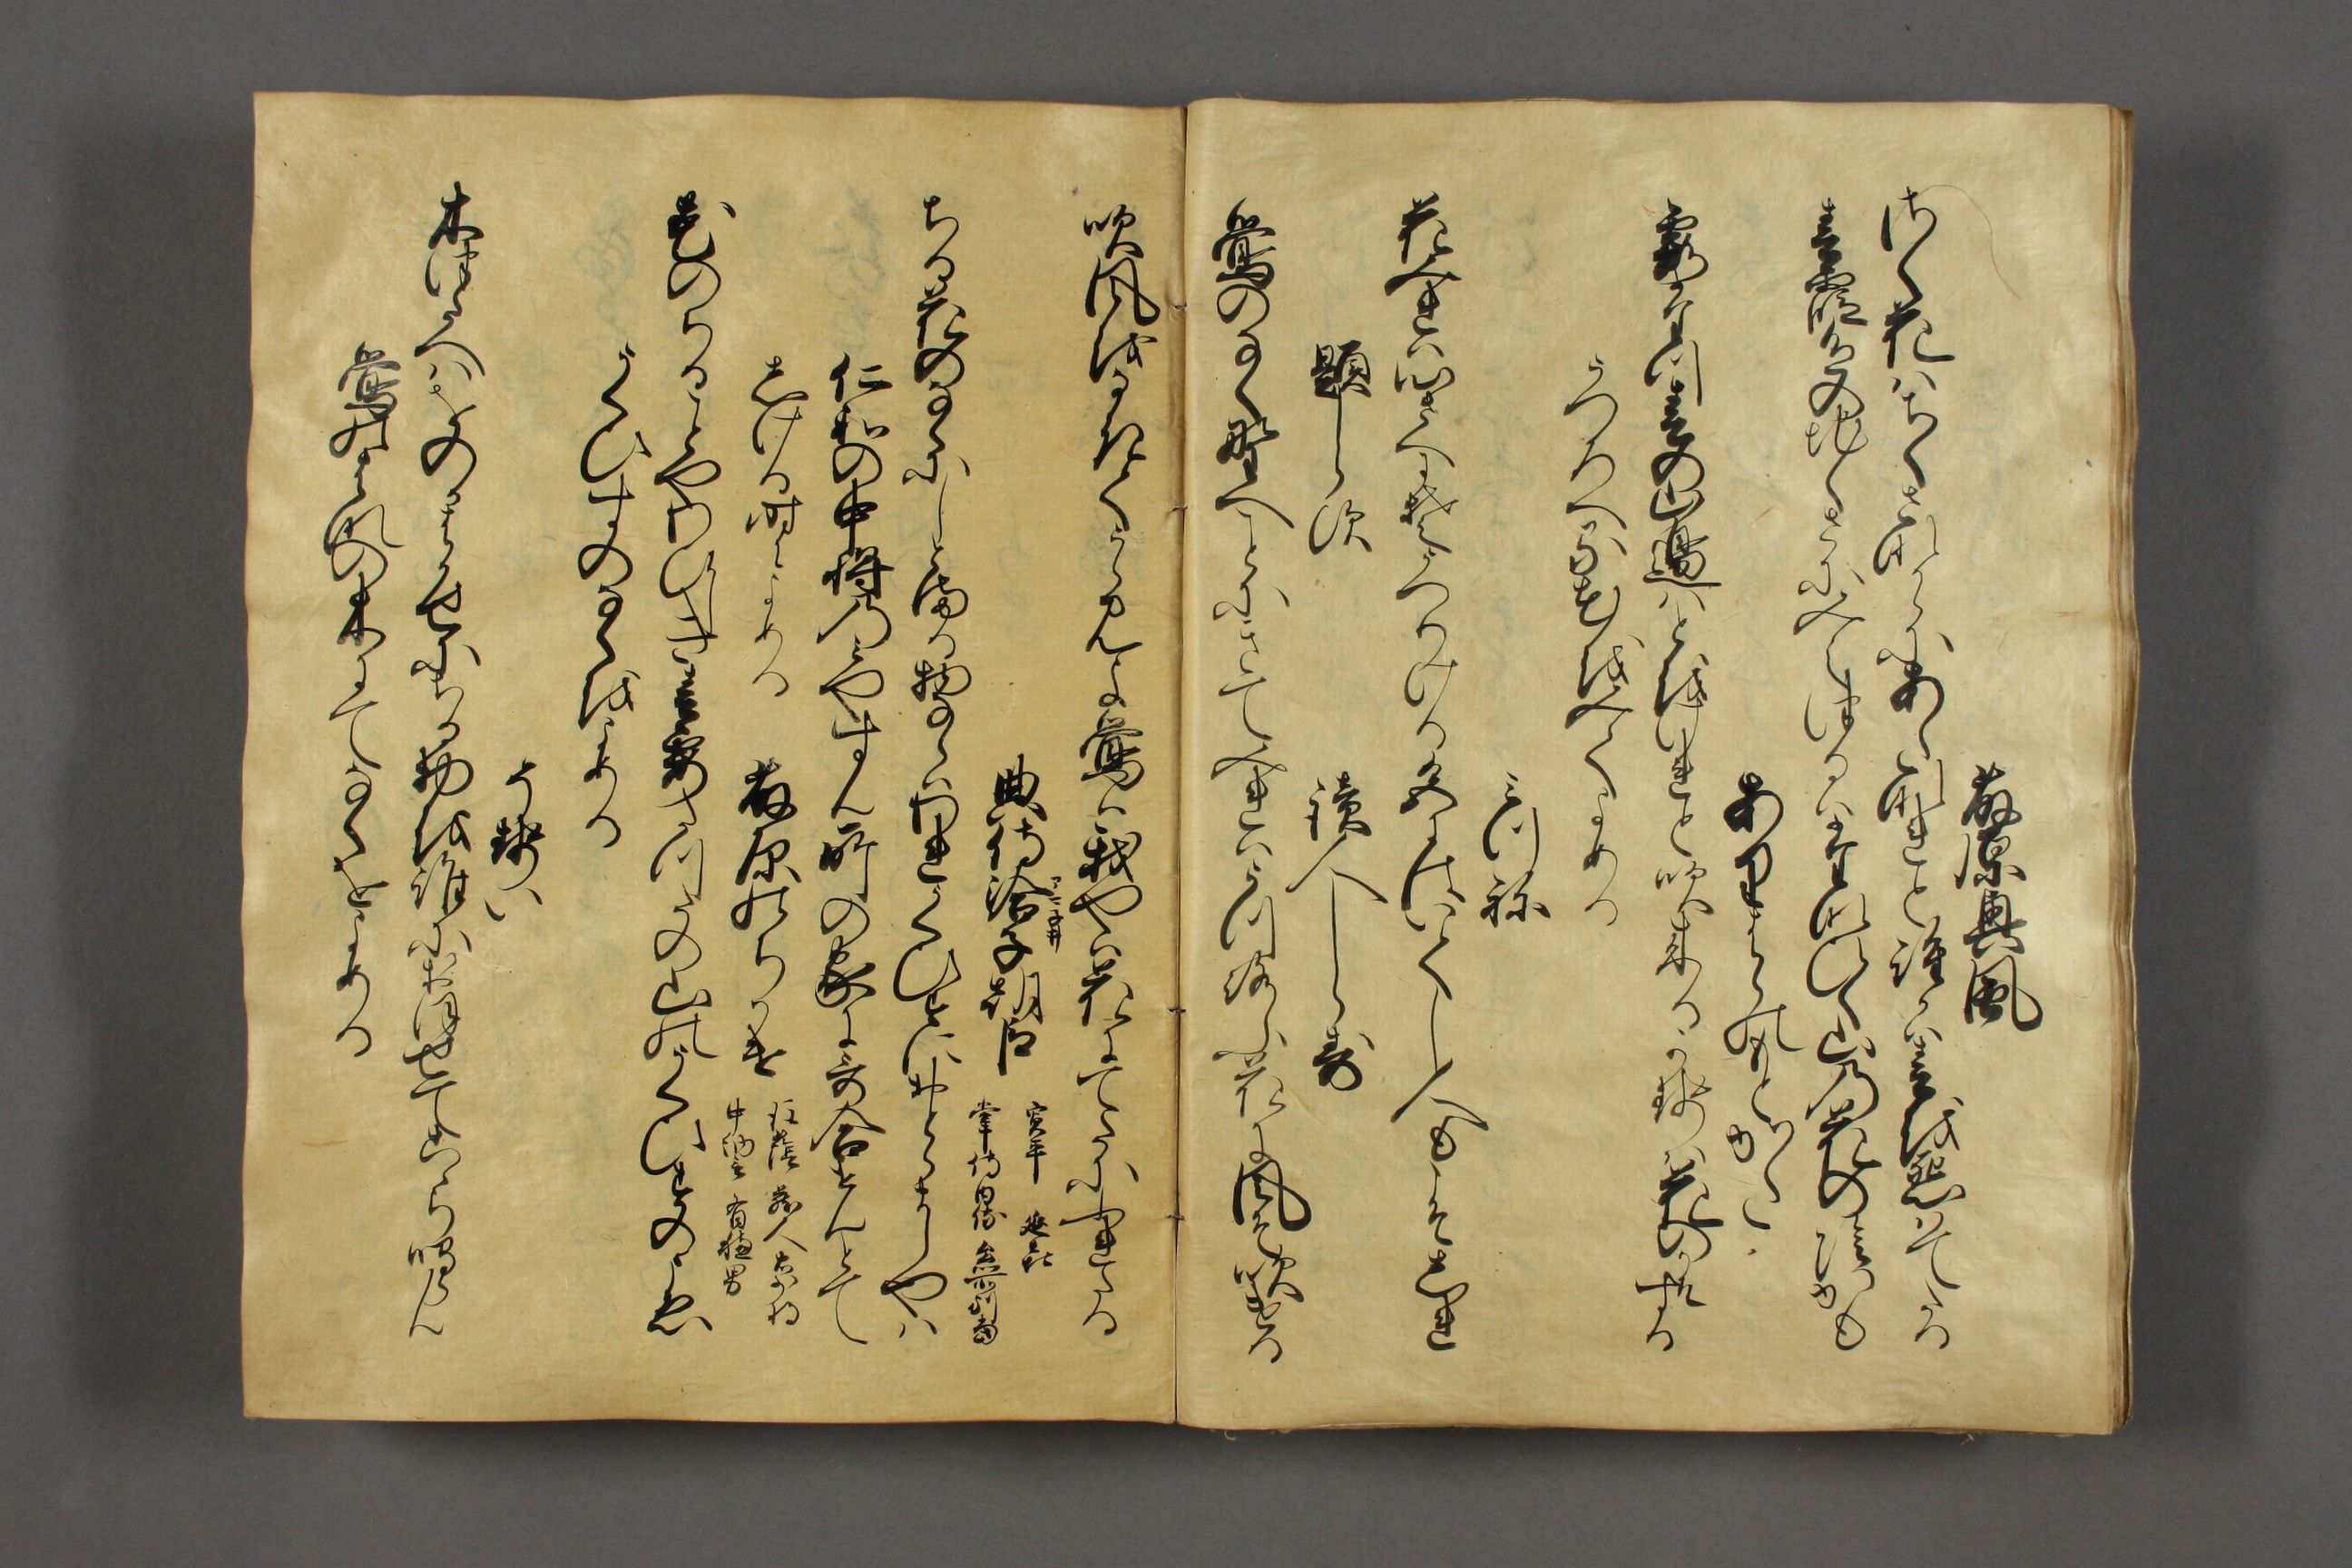 藤原興風
さく花はちくさなからにあたなれと誰かは春を恨はてたる
春霞色のちくさにみえつるはたなひく山の花の陰かも
ありはらのもとかた
霞たつ春の山邊はとをけれと吹来る風は花のかそする
うつろへる花をみてよめる
みつね
花みれは心さへにそうつりける色にはいてし人もこそしれ
題しらす　讀人しらす
鶯のなく野へことにきてみれはうつろふ花に風そ吹ける
吹風をなきてうらみよ鶯は我やは花にてたにふれたる
典侍洽子朝臣　寛平　延喜
掌侍
ちる花のなくにしとまる物ならはわれうくひすにおとらましやは
仁和の中将のみやすん所の家に哥合せんとて
しける時によめる　藤原のちかけ　蔵人
中納言有穂男
花のちることやわひしき春霞たつたの山のうくひすのこゑ
うくひすのなくをよめる
そせい
木つたへはをのかはかせにちる花を誰におほせてこゝら鳴らん
鶯の花の木にてなくをよめる